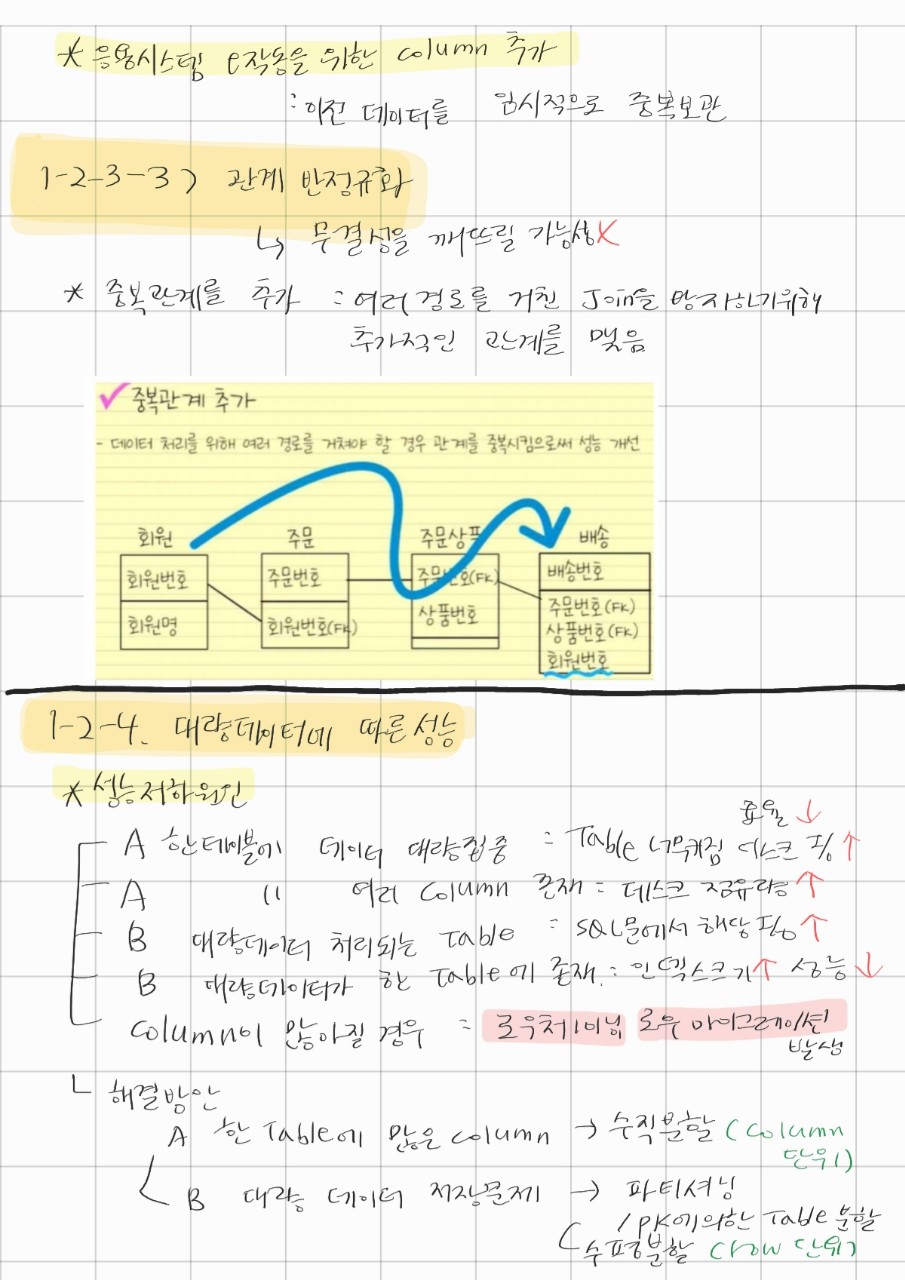 * 응용시스템 오작동을 위한 column 추가
: 이전 데이터를 임시적으로 중복보관
1-2-3-3) 관계 반정규화
↳ 무결성을 깨뜨릴 가능성X
* 중복관계를 추가 : 여러 경로를 거친 Join을 방지하기위해
추가적인 관계를 맺음
✓ 중복관계 추가
- 데이터 처리를 위해 여러 경로를 거쳐야 할 경우 관계를 중복시킴으로써 성능 개선
회원 주문 주문상품 배송
회원번호 주문번호 주문번호(FK) 배송번호
회원명 회원번호(FK) 상품번호 주문번호(FK)
상품번호(FK)
회원번호
1-2-4. 대량데이터에 따른 성능
* 성능저하원인
효율↓
A 한테이블에 데이터 대량집중 : Table 너무커짐 데스크 I/O ↑
A 〃 여러 Column 존재 : 데스크 점유량 ↑
B 대량데이터 처리되는 Table : SQL문에서 해당 I/O ↑
B 대량데이터가 한 Table에 존재 : 인덱스크기↑ 성능↓
Column이 많아질 경우 : 로우체이닝 로우 마이그레이션
발생
└ 해결방안
A 한 Table에 많은 column → 수직분할 (Column
단위)
B 대량 데이터 저장문제 → 파티셔닝
/ PK에의한 Table 분할
수평분할 (row 단위)